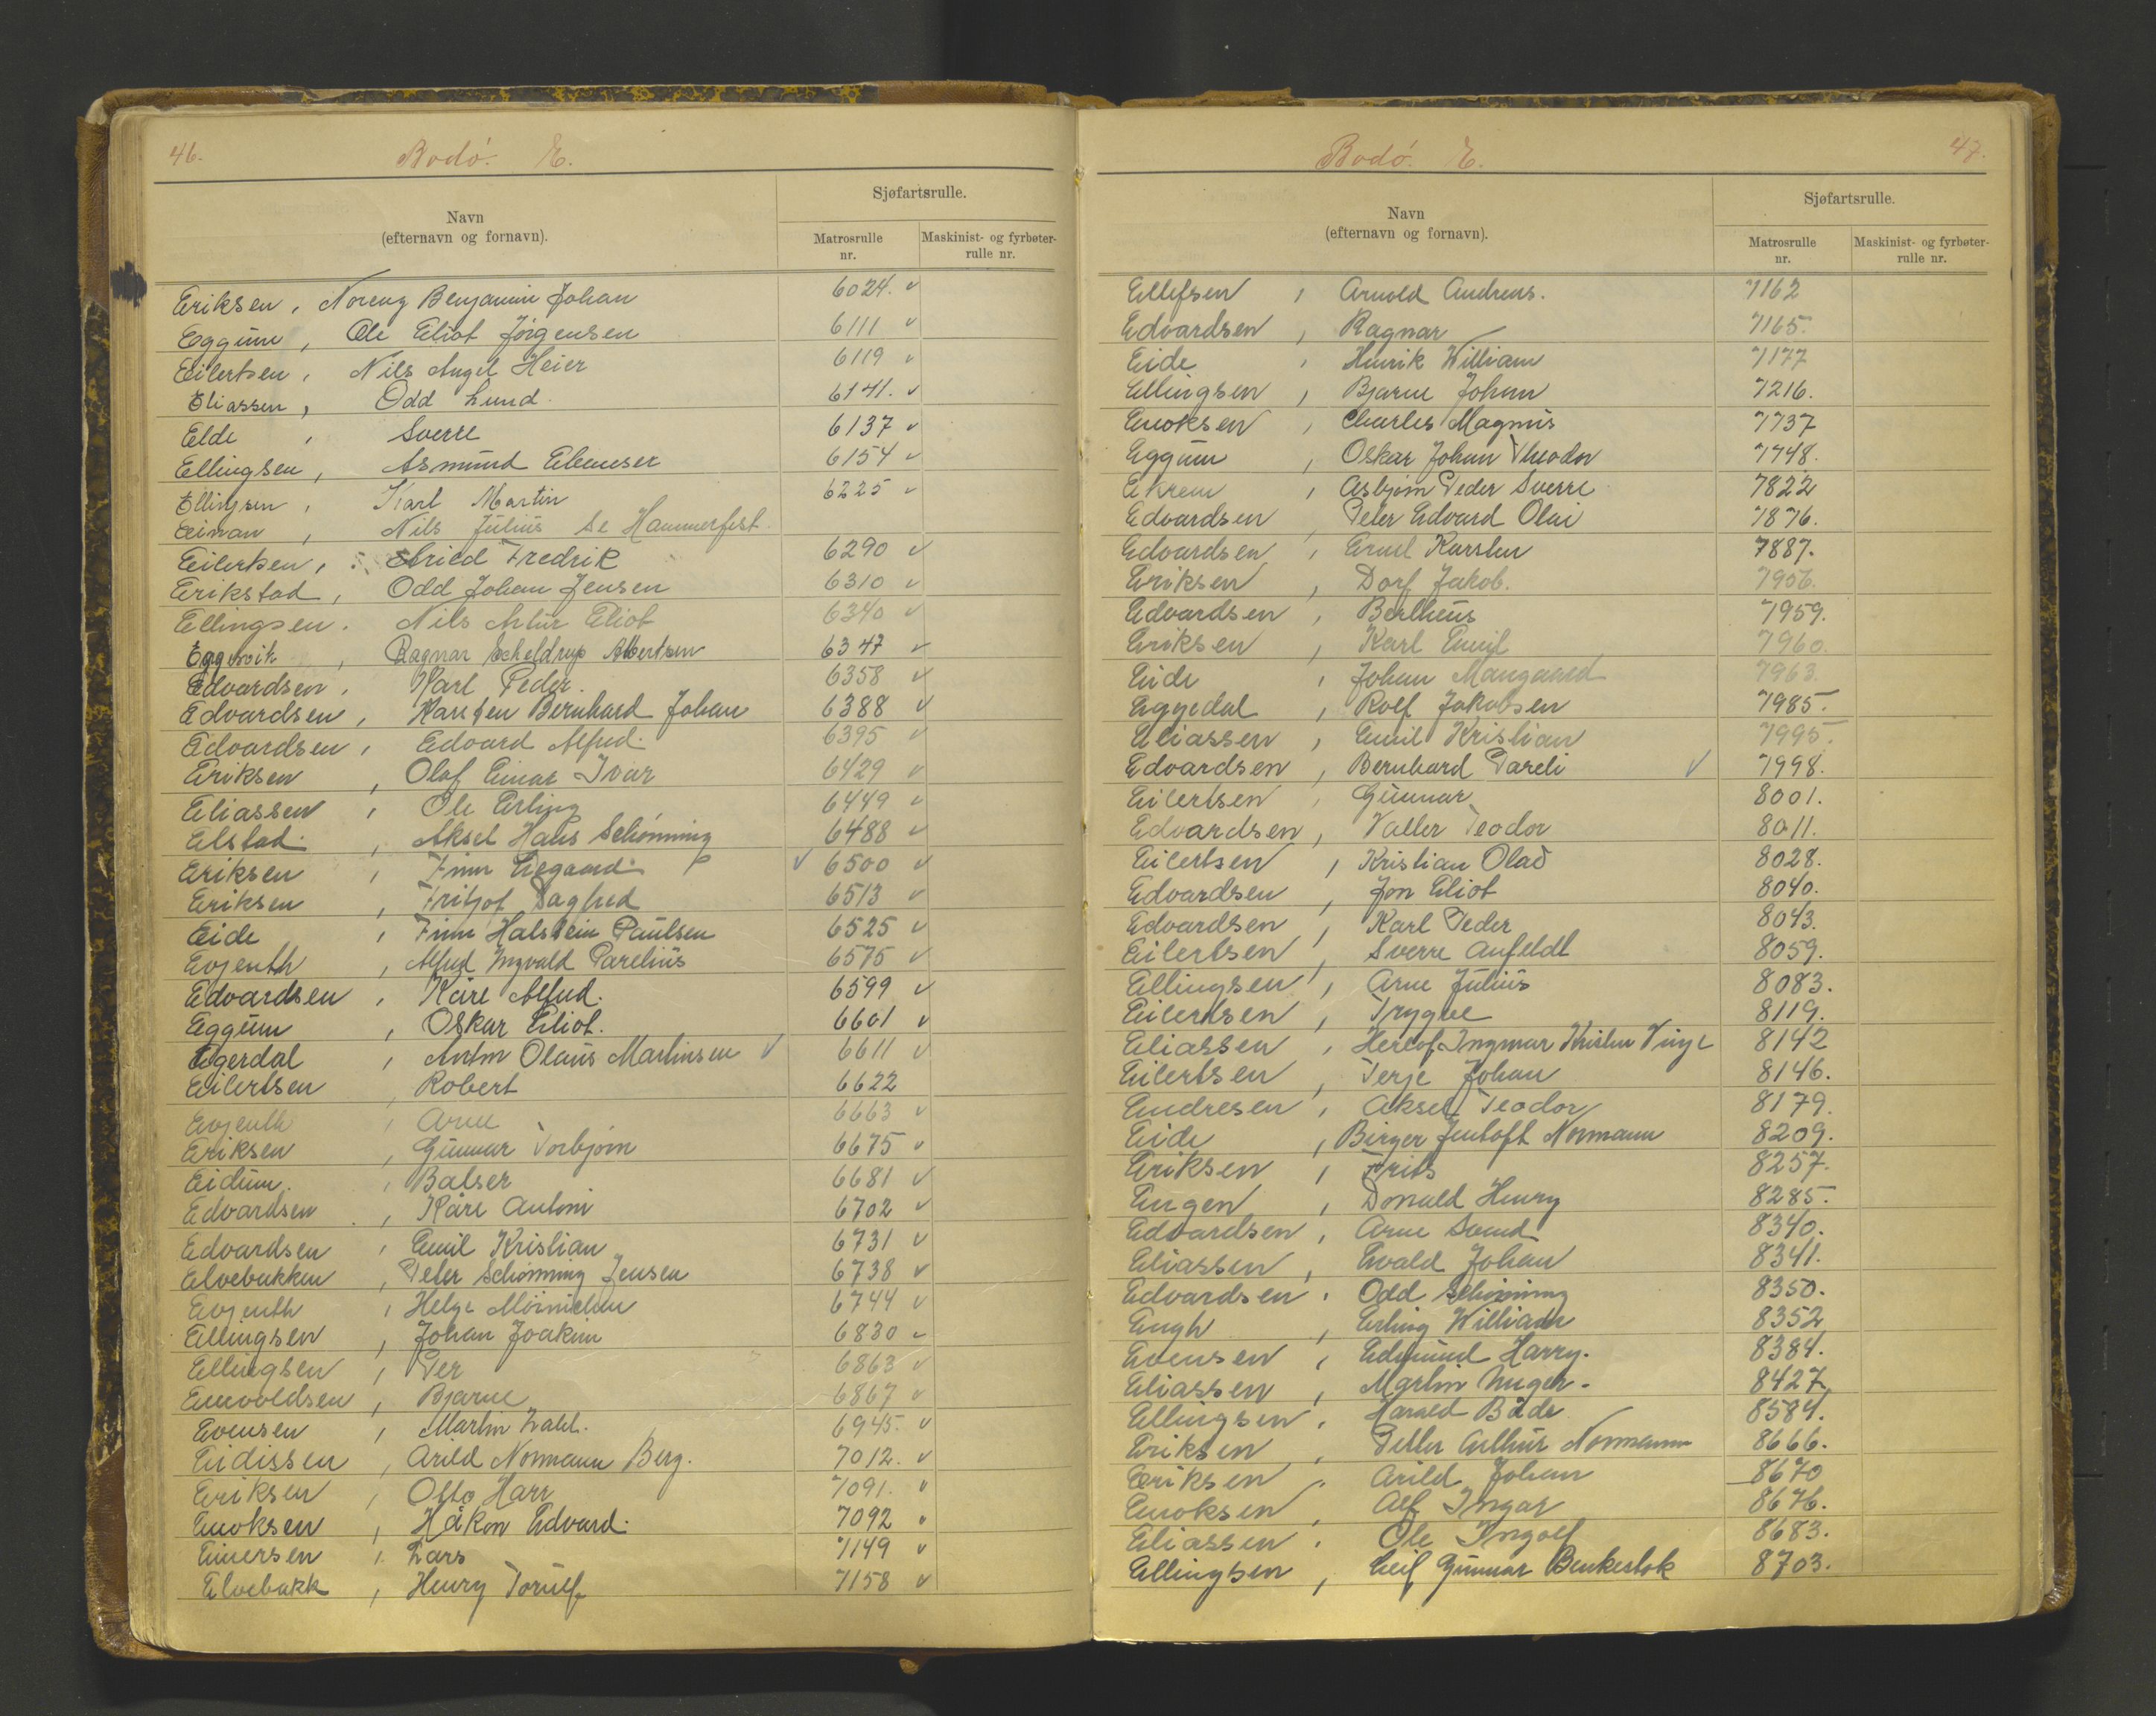 46.
Bodó. E.
Navn
(efternavn og fornavn).
Sjøfartsrulle.
Matrosrulle
nr.
Maskinist- og fyrbøter-
rulle nr.
Eriksen, Noreng Benjamin Johan 6024. v
Eggum, Ole Eliot Jörgensen 6111 v
Eilertsen, Nils Angel Heier 6119 v
Eliassen, Odd Lund. 6141. v
Elde, Sverre 6137 v
Ellingsen, Asmund Ebeneser 6154 v
Ellingsen, Karl Martin 6225 v
Einan, Nils Julius Se Hammerfest
Eilertsen, Arild Fredrik 6290 v
Erikstad, Odd Johan Jensen 6310 v
Ellingsen. Nils Artur Eliot 6340 v
Eggesvik, Ragnar Scheldrup Albertsen 6347 v
Edvardsen, Karl Peder. 6358 v
Edvardsen, Karsten Bernhard Johan 6388 v
Edvardsen, Edvard Alfred. 6395 v
Eriksen, Olaf Einar Ivar 6429 v
Eliassen, Ole Erling 6449 v
Elstad, Aksel Hans Schönning 6488 v
Eriksen, Finn Degaard v 6500 v
Eriksen, Fritjof Dagfred 6513 v
Eide, Finn Halstein Paulsen 6525 v
Evjenth, Alfred Ingvald Parelius 6575 v
Edvardsen, Kåre Alfred. 6599 v
Eggum, Oskar Eliot. 6601 v
Egerdal, Anton Olaus Martinsen v 6611 v
Eilertsen, Robert 6622
Evjenth, Arne 6663 v
Eriksen, Gunnar Torbjörn 6675 v
Eidum, Balser 6681 v
Edvardsen, Kåre Antoni 6702 v
Edvardsen, Emil Kristian 6731 v
Elvebakken, Peter Schönning Jensen 6738 v
Evjenth, Helge Mörnichen 6744 v
Ellingsen, Johan Joakim 6830 v
Ellingsen, Per 6863 v
Enevoldsen, Bjarne 6867 v
Evensen, Martin Dahl. 6945. v
Eidissen, Arild Normann Berg. 7012. v
Eriksen, Otto Harr 7091. v
Enoksen, Håkon Edvard. 7092 v
Einersen, Lars 7149 v
Elvebakk, Henry Torulf 7158 v
47.
Bodó. E.
Navn
(efternavn og fornavn).
Sjøfartsrulle.
Matrosrulle
nr.
Maskinist- og fyrbøter-
rulle nr.
Ellefsen, Arnold Andreas. 7162
Edvardsen, Ragnar 7165.
Eide, Henrik William 7177
Ellingsen, Bjarne Johan 7216.
Enoksen, Charles Magnus 7737
Eggum, Oskar Johan Theodor 7748.
Ekrem, Asbjörn Peder Sverre 7822
Edvardsen, Peter Edvard Olai 7876.
Edvardsen, Ernst Karsten 7887.
Eriksen, Dorf Jakob. 7956.
Edvardsen, Bertheus 7959.
Eriksen, Karl Emil 7960.
Eide, Johan Mangaard 7963.
Eggedal, Rolf Jakobsen 7985.
Eliassen, Emil Kristian 7995.
Edvardsen, Bernhard Pareli v 7998.
Eilertsen, Gunnar 8001.
Edvardsen, Valler Teodor 8011.
Eilertsen, Kristian Olad 8028.
Edvardsen, Jon Eliot 8040.
Edvardsen, Karl Peder 8043.
Eilertsen, Sverre Anfeldt 8059.
Ellingsen, Arne Julius 8083.
Eilertsen, Trygve 8119.
Eliassen, Herlof Ingmar Kristen Vinje 8142
Eilertsen, Terje Johan 8146.
Endresen, Aksel Teodor 8179.
Eide, Birger Jentoft Normann 8209.
Eriksen, Frits 8257.
Engen, Donald Henry 8285.
Edvardsen, Arne Svend 8340.
Eliassen, Evald Johan 8341.
Edvardsen, Odd Schönning 8350.
Engh, Erling William 8352
Evensen, Edmund Harry. 8384.
Eliassen, Martin 8427
Ellingsen, Harald 8584.
Eriksen, Petter Arthur Normann 8666.
Eriksen, Arild Johan 8670
Enoksen, Alf Ingar 8676.
Eliassen, Ole Ingolf 8683.
Ellingsen, Leif Gunnar Benkestok 8703.